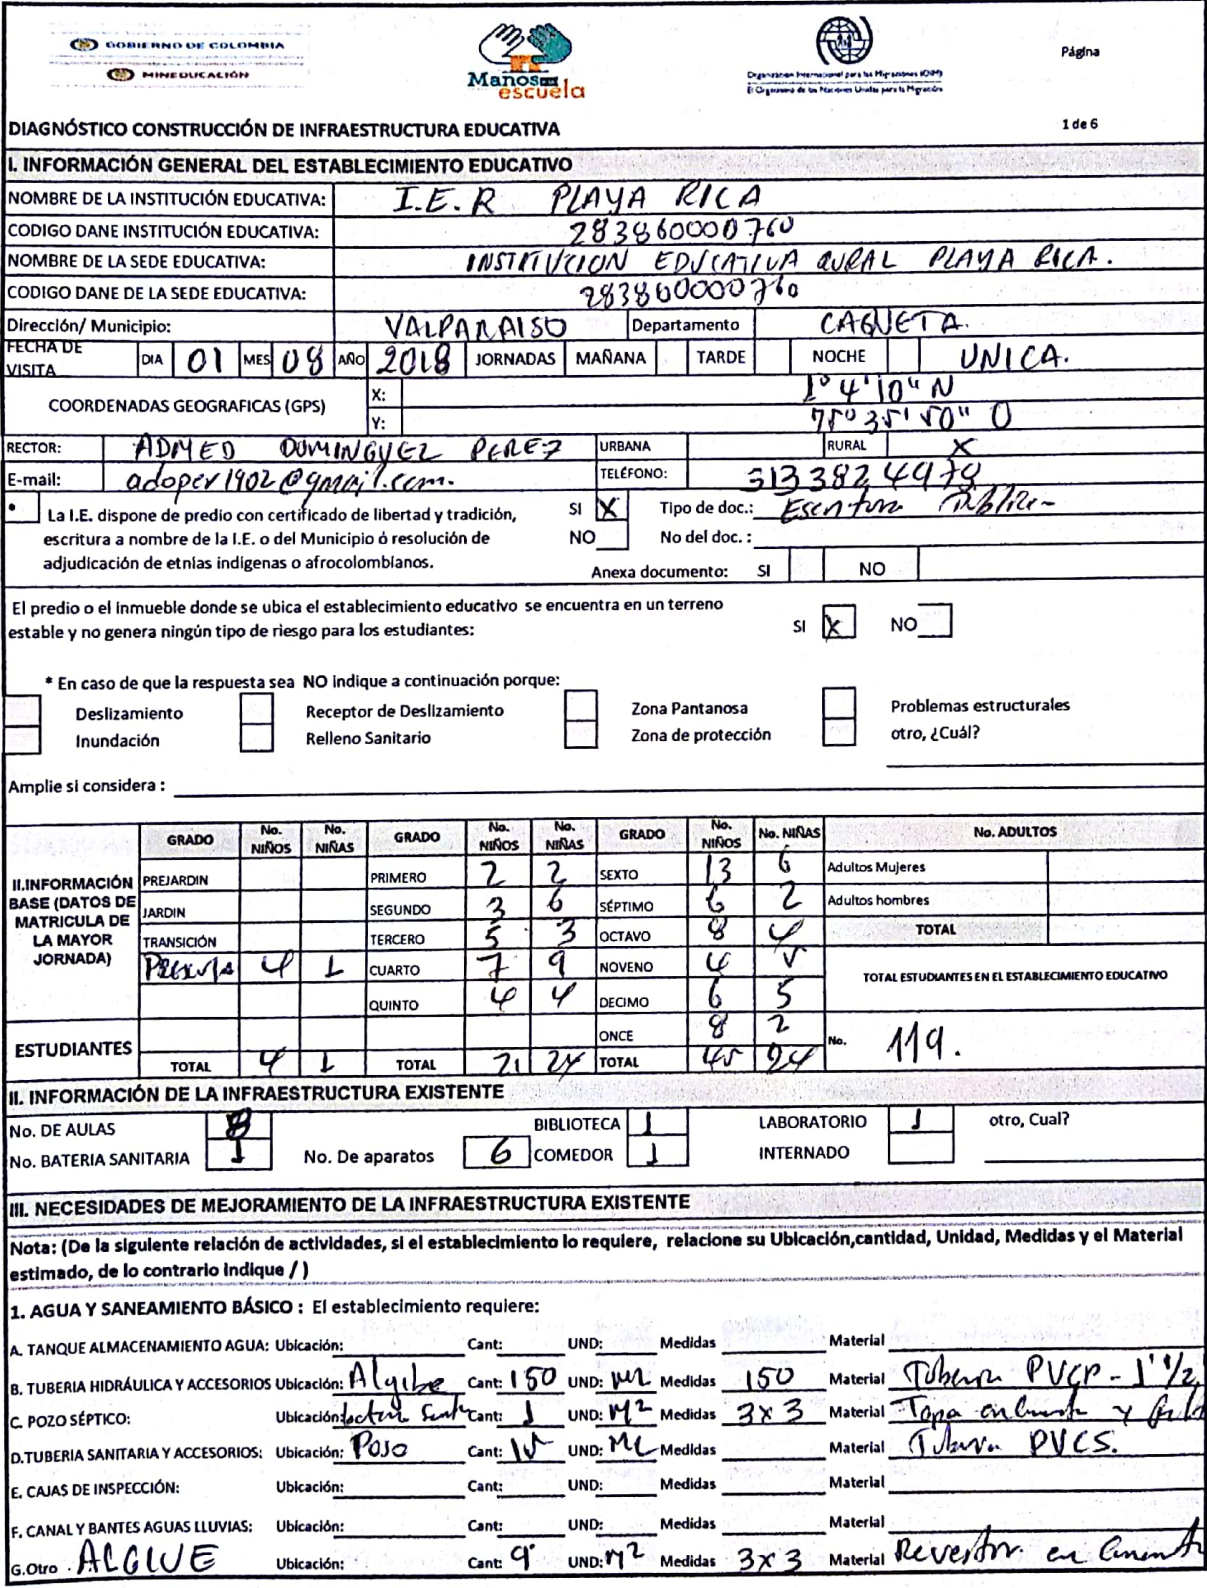 GOBIERNO DE COLOMBIA
MINEDUCACIÓN
Manos a la escuela
Organización Internacional para las Migraciones (OIM)
El Organismo de las Naciones Unidas para la Migración
Página
DIAGNÓSTICO CONSTRUCCIÓN DE INFRAESTRUCTURA EDUCATIVA 1 de 6
I. INFORMACIÓN GENERAL DEL ESTABLECIMIENTO EDUCATIVO
NOMBRE DE LA INSTITUCIÓN EDUCATIVA: I.E.R PLAYA RICA
CODIGO DANE INSTITUCIÓN EDUCATIVA: 283860000760
NOMBRE DE LA SEDE EDUCATIVA: INSTITUCION EDUCATIVA RURAL PLAYA RICA.
CODIGO DANE DE LA SEDE EDUCATIVA: 283860000760
Dirección/ Municipio: VALPARAISO Departamento CAQUETA.
FECHA DE VISITA DIA 01 MES 08 AÑO 2018 JORNADAS MAÑANA TARDE NOCHE UNICA.
COORDENADAS GEOGRAFICAS (GPS) X: 1° 4' 10" N
Y: 75° 35' 50" O
RECTOR: ADMED DOMINGUEZ PEREZ URBANA RURAL X
E-mail: adoper1902@gmail.com. TELÉFONO: 3133824979
* La I.E. dispone de predio con certificado de libertad y tradición, SI X Tipo de doc.: Escritura Publica
escritura a nombre de la I.E. o del Municipio ó resolución de NO No del doc. :
adjudicación de etnias indígenas o afrocolombianos. Anexa documento: SI NO
El predio o el inmueble donde se ubica el establecimiento educativo se encuentra en un terreno
estable y no genera ningún tipo de riesgo para los estudiantes: SI X NO
* En caso de que la respuesta sea NO indique a continuación porque:
Deslizamiento Receptor de Deslizamiento Zona Pantanosa Problemas estructurales
Inundación Relleno Sanitario Zona de protección otro, ¿Cuál?
Amplie si considera :
GRADO No. NIÑOS No. NIÑAS GRADO No. NIÑOS No. NIÑAS GRADO No. NIÑOS No. NIÑAS No. ADULTOS
II.INFORMACIÓN BASE (DATOS DE MATRICULA DE LA MAYOR JORNADA)
PREJARDIN PRIMERO 2 2 SEXTO 13 6 Adultos Mujeres
JARDIN SEGUNDO 3 6 SÉPTIMO 6 2 Adultos hombres
TRANSICIÓN TERCERO 5 3 OCTAVO 8 4 TOTAL
4 1 CUARTO 7 9 NOVENO 4 5 TOTAL ESTUDIANTES EN EL ESTABLECIMIENTO EDUCATIVO
QUINTO 4 4 DECIMO 6 5
ESTUDIANTES ONCE 8 2 No. 119.
TOTAL 4 1 TOTAL 21 24 TOTAL 45 24
II. INFORMACIÓN DE LA INFRAESTRUCTURA EXISTENTE
No. DE AULAS 8 BIBLIOTECA 1 LABORATORIO 1 otro, Cual?
No. BATERIA SANITARIA 1 No. De aparatos 6 COMEDOR 1 INTERNADO
III. NECESIDADES DE MEJORAMIENTO DE LA INFRAESTRUCTURA EXISTENTE
Nota: (De la siguiente relación de actividades, si el establecimiento lo requiere, relacione su Ubicación,cantidad, Unidad, Medidas y el Material
estimado, de lo contrario indique / )
1. AGUA Y SANEAMIENTO BÁSICO : El establecimiento requiere:
A. TANQUE ALMACENAMIENTO AGUA: Ubicación: Cant: UND: Medidas Material
B. TUBERIA HIDRÁULICA Y ACCESORIOS Ubicación: Algibe Cant: 150 UND: ML Medidas 150 Material Tuberia PVCP - 1' 1/2
C. POZO SÉPTICO: Ubicación: Cant: 1 UND: M2 Medidas 3x3 Material Tapa en y
D.TUBERIA SANITARIA Y ACCESORIOS: Ubicación: Poso Cant: 15 UND: ML Medidas Material Tuberia PVCS.
E. CAJAS DE INSPECCIÓN: Ubicación: Cant: UND: Medidas Material
F. CANAL Y BANTES AGUAS LLUVIAS: Ubicación: Cant: UND: Medidas Material
G.Otro . ALGIVE Ubicación: Cant: 9 UND: M2 Medidas 3x3 Material en